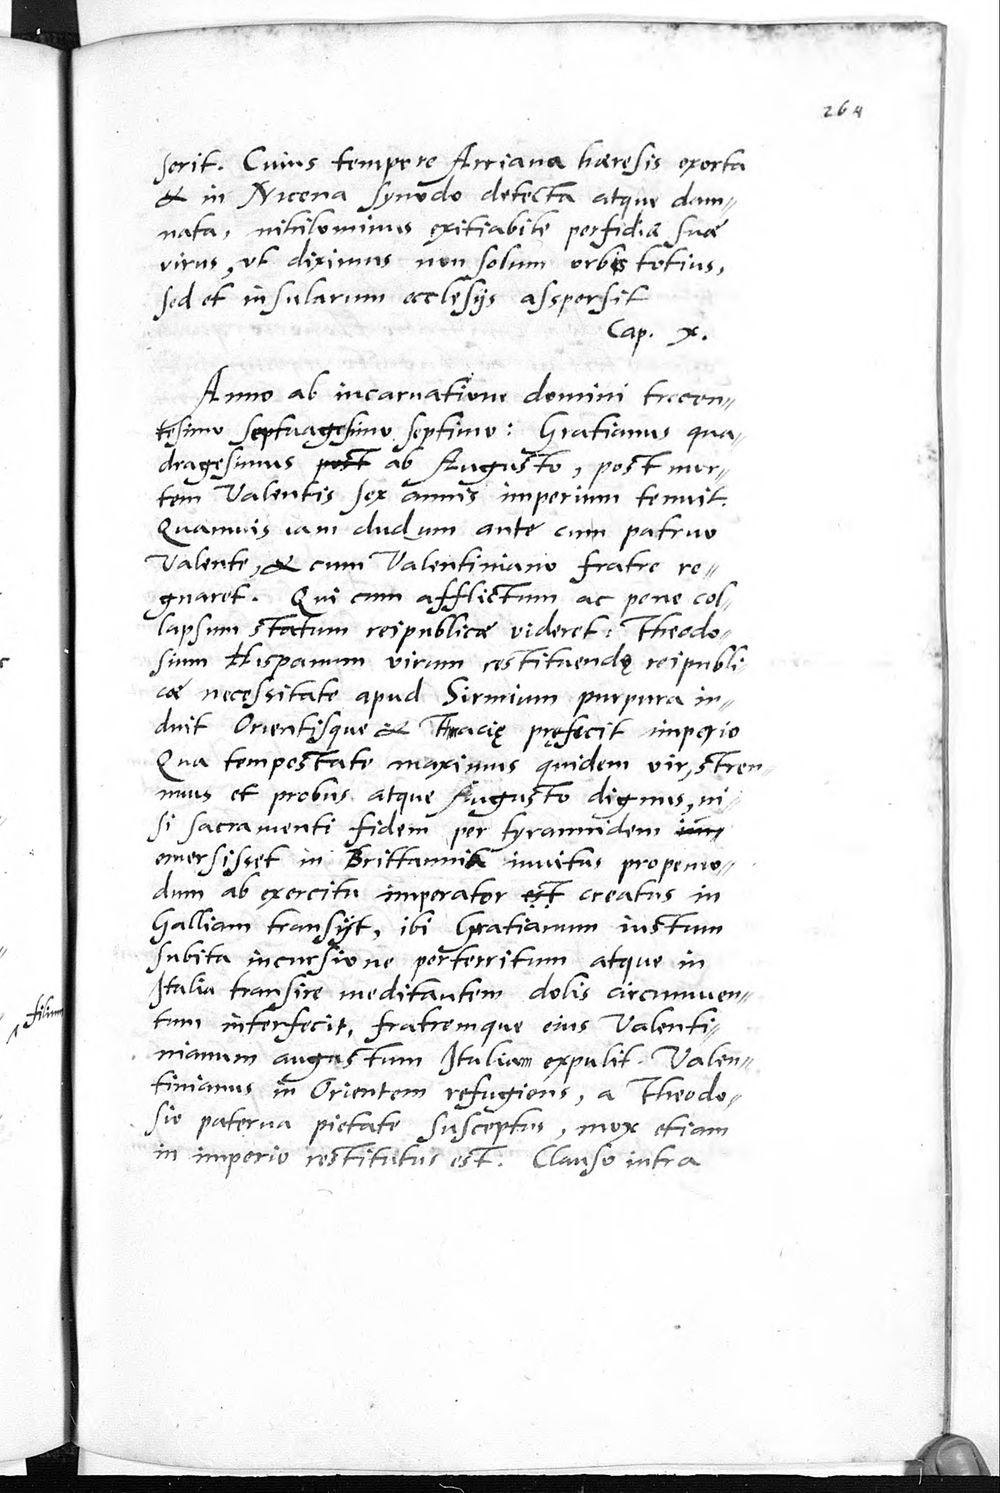 264
serit. Cuius tempore Arriana hæresis exorta
& in Nicena synodo detecta atque dam„
nata, nihilominus exitiabile perfidiæ suæ
virus, vt diximus non solum orbis totius,
sed et insularum ecclesijs asspersit
Cap. x.
Anno ab incarnatione domini trecen„
tesimo septuagesimo septimo: Gratianus qua„
dragesimus post ab Augusto, post mor„
tem Valentis sex annis imperium tenuit.
Quamuis iam dudum ante cum patruo
Valente, & cum Valentiniano fratre re„
gnaret. Qui cum afflictum ac pene col„
lapsum statum reipublicæ videret: Theodo„
sium Hispanum virum restituendę reipubli„
cæ necessitate apud Sirmium purpura in„
duit Orientisque & Thracię pręfecit imperio
Qua tempestate maximus quidem vir, stren„
nuus et probus atque Augusto dignus, ni„
si sacramenti fidem per tyrannidem
emersisset in Brittannia inuitus propemo„
dum ab exercitu imperator est creatus in
Galliam transijt, ibi Gratianum iustum
subita incursione perterritum atque in
Italia transire meditantem dolis circumuen„
tum interfecit, fratremque eius Valenti„
nianum augustum Italiam expulit. Valen„
tinianus in Orientem refugiens, a Theodo„
sio paterna pietate susceptus, mox etiam
in imperio restitutus est. Clauso intra
filium